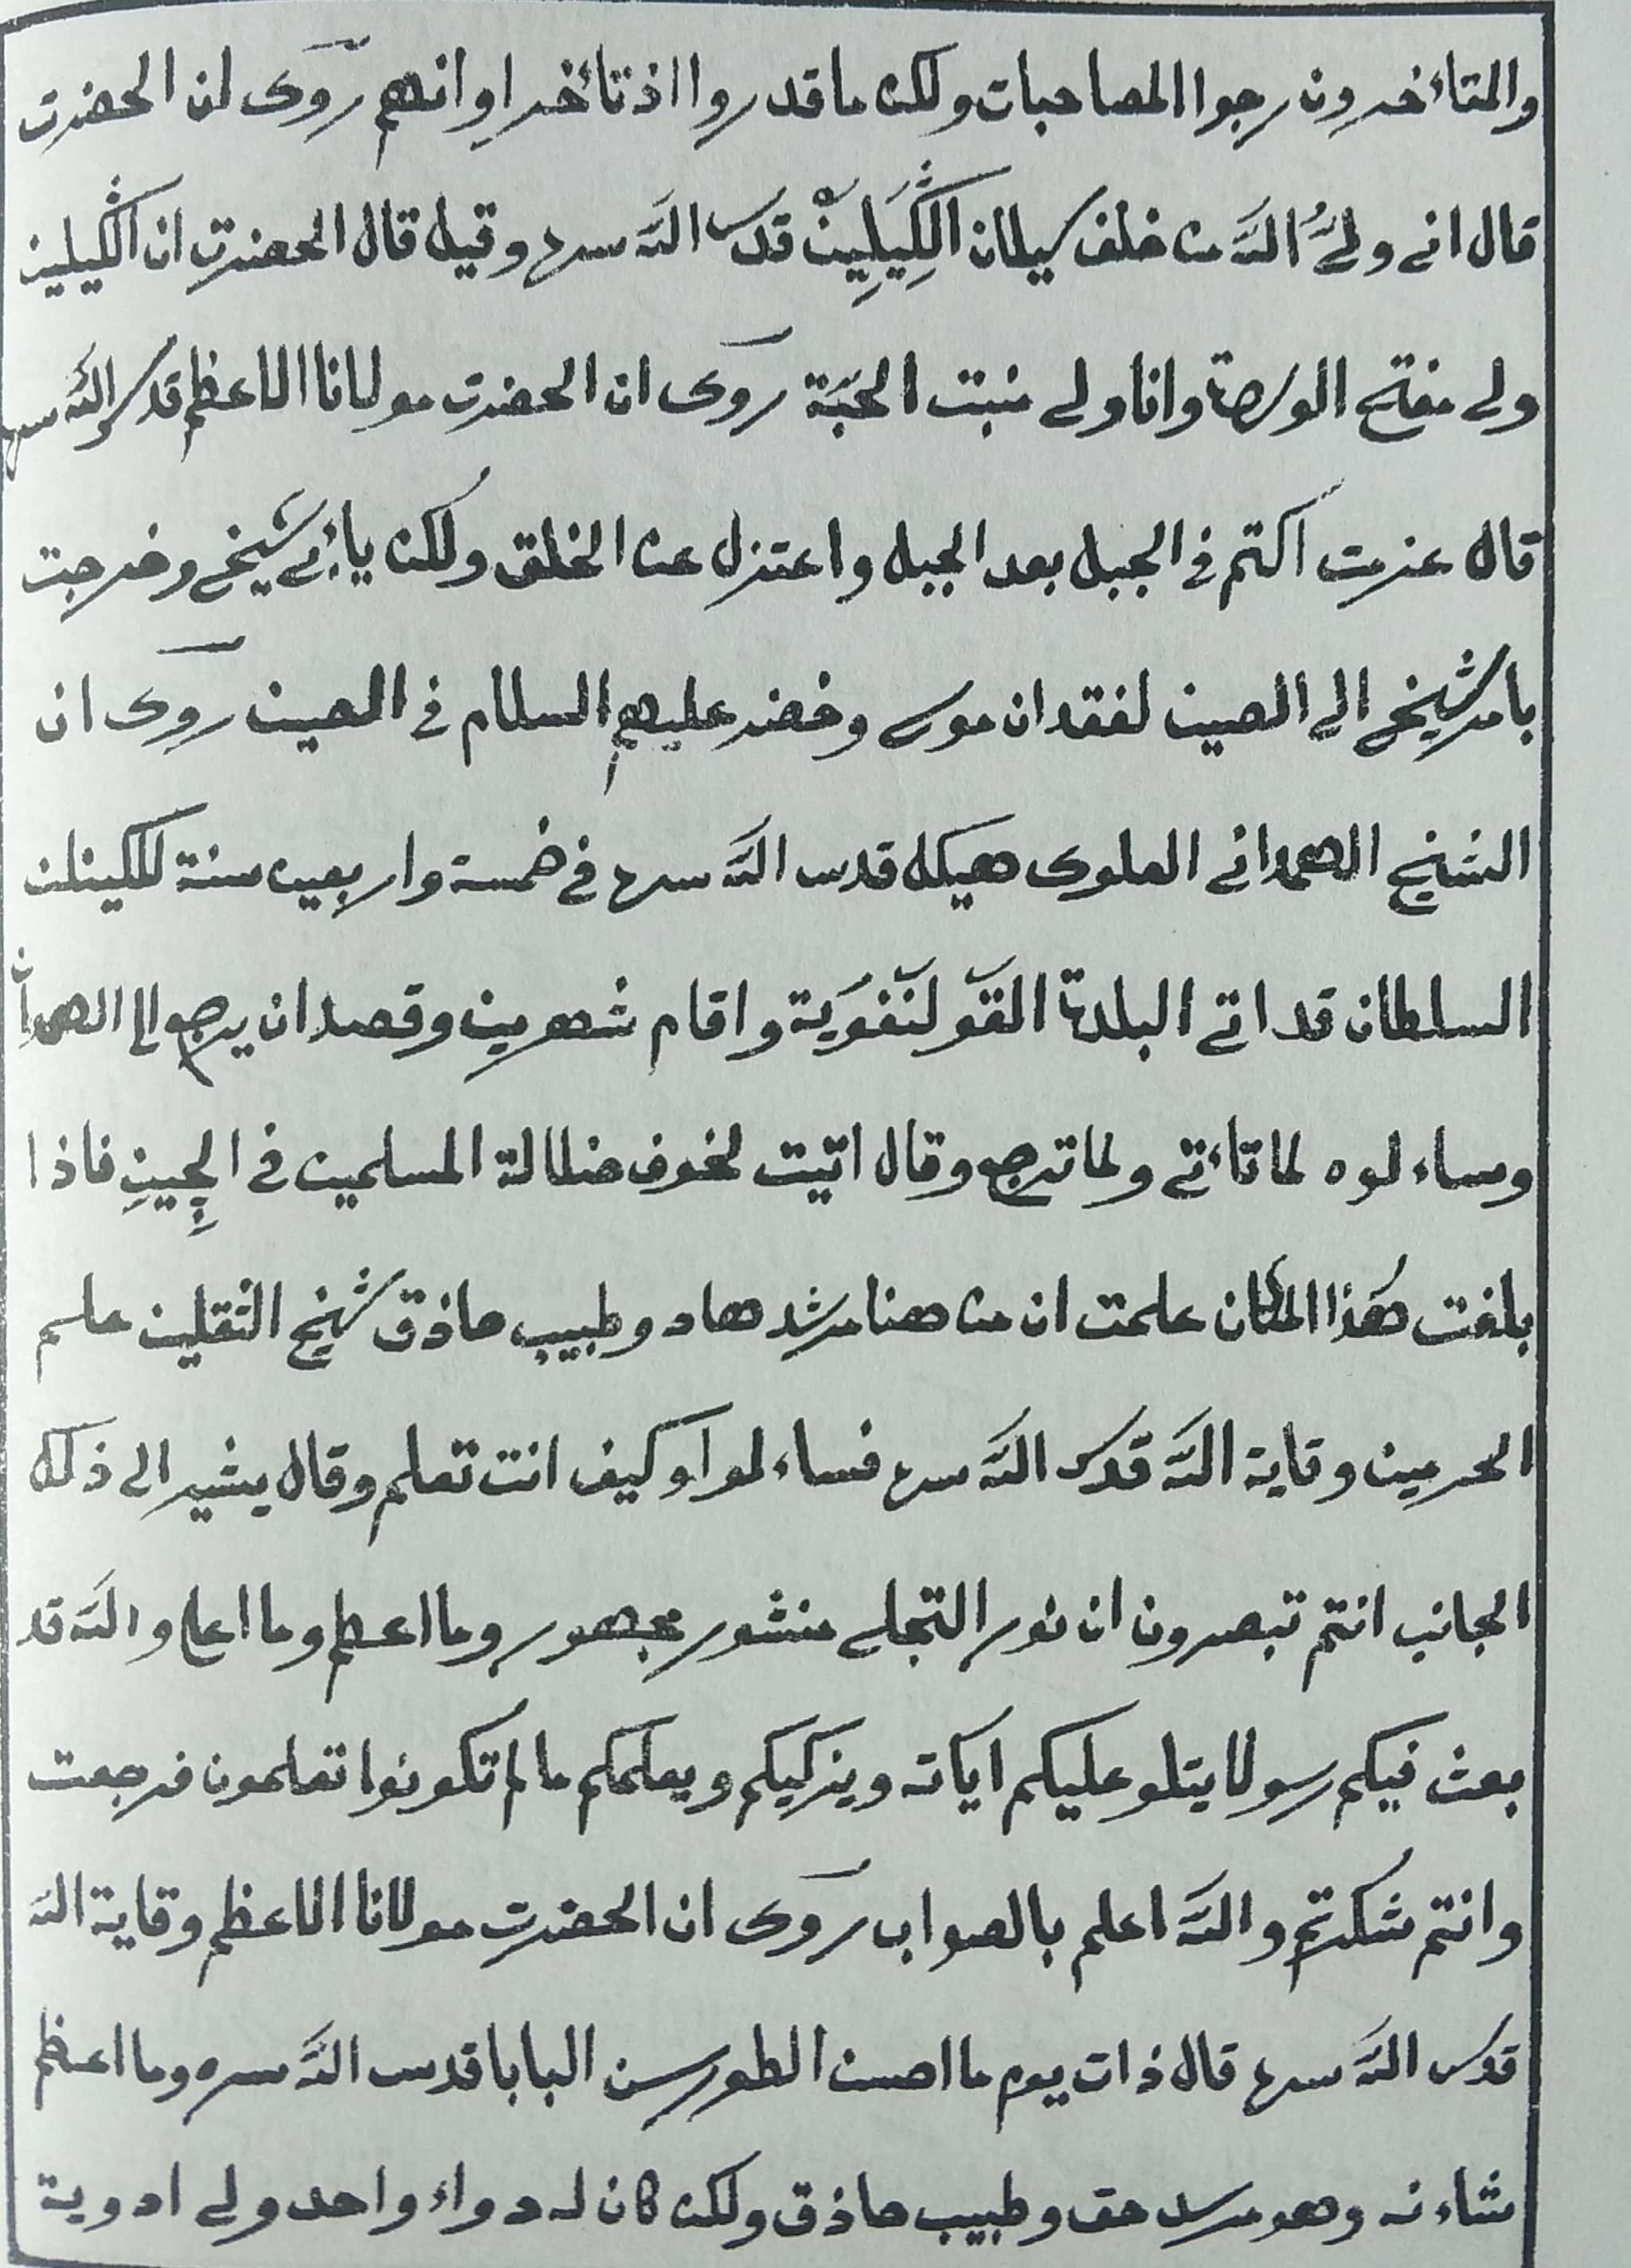 والمتاءخرون رجوا المصاحبات ولكن ما قدروا اذ تاءخر اوانهم روى ان الحضرت
قال اني وليُّ اللّه من خلف كيلان الكِّيَلِيِنْ قدس اللّه سره وقيل قال الحضرت ان الكّيلين
ولي مفتح الورصة وانا ولي منبت الحَبّة روى ان الحضرت مولانا الاعظم قدس اللّه سره
قال عزمت اكتم في الجبل بعد الجبل واعتزل عن الخلق ولكن ياءمر شيخي وخرجت
بامر شيخي الى الصين لفقدان موسى وخضر عليهم السلام في الصين روى ان
الشيخ الهمداني العلوى هيكله قدس اللّه سره في خمسة واربعين سنة للكينلن
السلطان قد اتى البلدة القَوَلنَفوَية واقام شهرين وقصد ان يرجع الى الهمدان
وساءلوه لما تاءتي ولما ترجع وقال اتيت لخوف ضلالة المسلمين في الچينِ فاذا
بلغت هَذا المكان علمت ان من هنا مرشد هاد وطبيب حاذق شيخ الثقلين علم
الحرمين وقاية اللّه قدس اللّه سره فساءلوا وكيف انت تعلم وقال يشير الى ذلك
الجانب انتم تبصرون ان نور التجلي منشور مجهور وما اعظم وما اعلى واللّه قد
بعث فيكم رسولا يتلو عليكم اياته ويزكيكم ويعلمكم ما لم تكونوا تعلمون فرجعت
وانتم شكرتم واللّه اعلم بالصواب روى ان الحضرت مولانا الاعظم وقاية اللّه
قدس اللّه سره قال ذات يوم ما احسن الطورسن البابا قدس اللّه سره وما اعظم
شاءنه وهو مرسد حق وطبيب حاذق ولكن كان له دواء واحد ولي ادوية